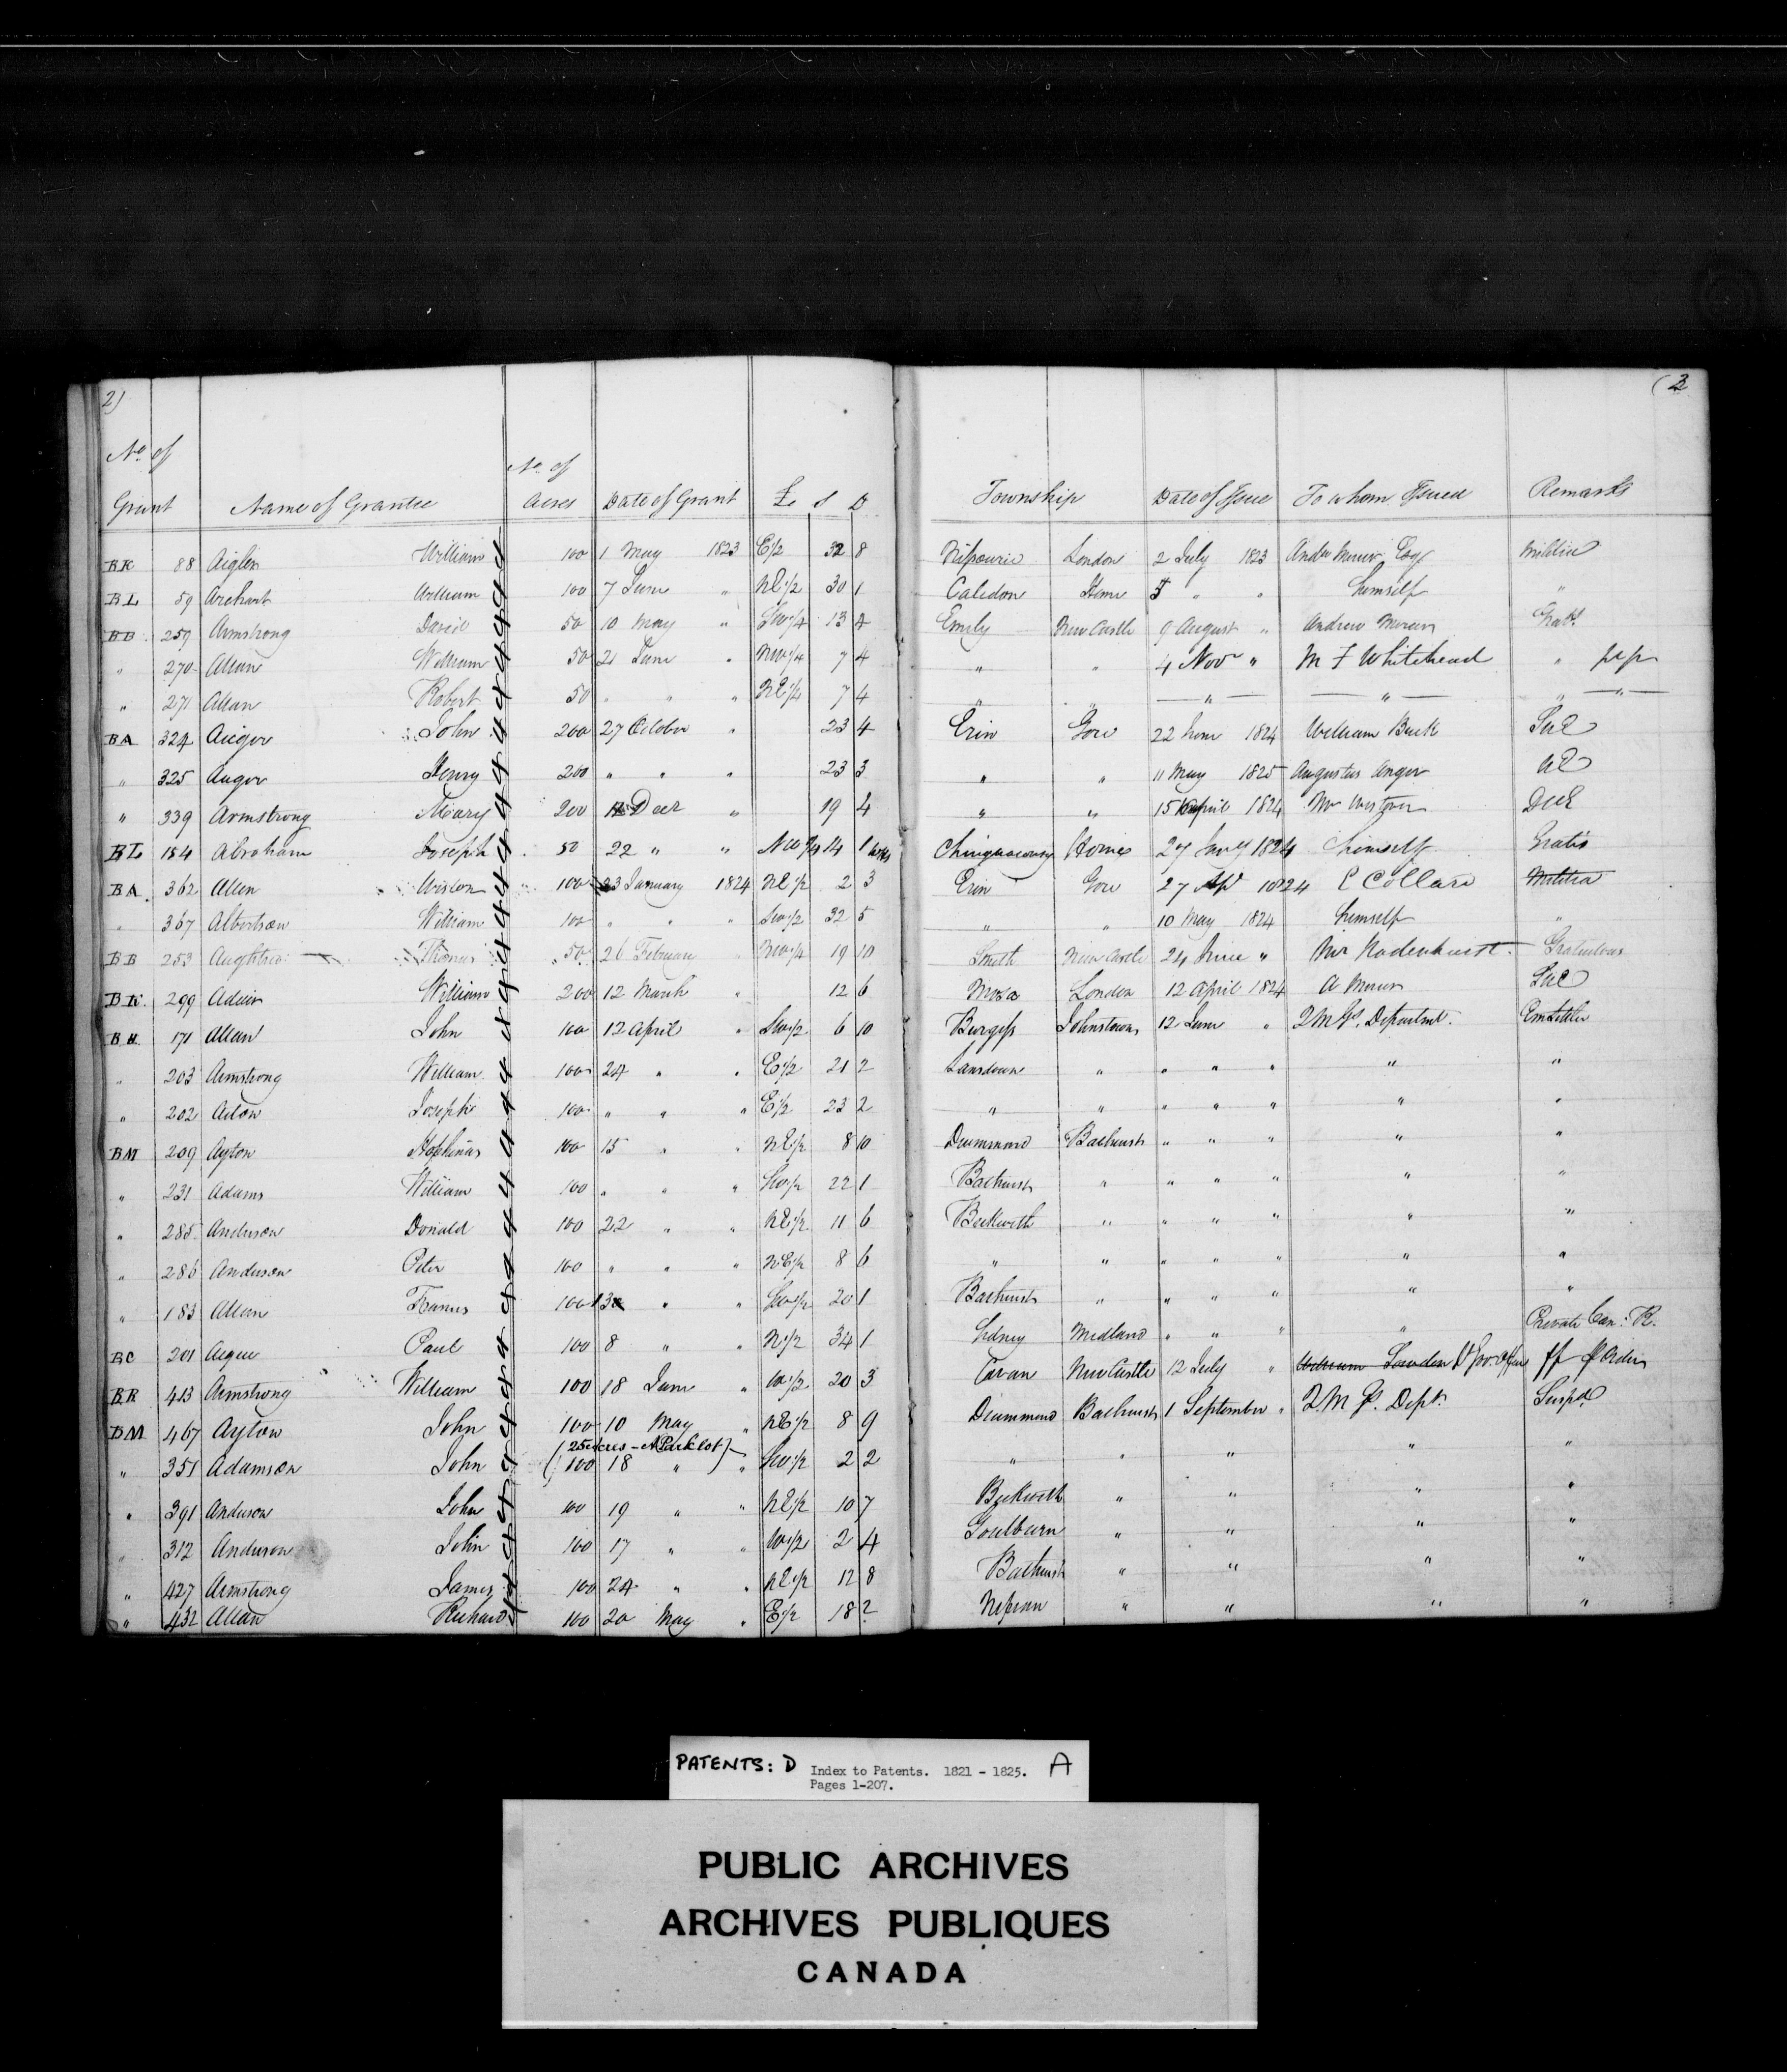 2) (3
No. of Grant Name of Grantee No. of Acres Date of Grant £ s D Township Date of Issue To whom Issued Remarks
BK 88 William 100 1 May 1823 E1/2 32 8 London 2 July 1823 Militia
BL 59 William 100 7 June " NE1/2 30 1 Caledon Home 5 " " himself "
259 Armstrong David 50 10 May " SW1/4 13 4 Emily New Castle 9 August " Andrew Mercer
" 270 Allan William 50 21 June " NW1/4 7 4 " " 4 Novr " M F Whitehead "
" 271 Allan Robert 50 " " " NE1/4 7 4 " " " " " "
BA 324 John 200 27 October " 23 4 Erin Gore 22 June 1824 William Buck
" 325 Auger Henry 200 " " " 23 3 " " 11 May 1825 Augustus Anger
" 339 Armstrong Mary 200 Decr " 19 4 " " 15 April 1824
BL 184 Abraham Joseph 50 22 " " 14 1 Chinguacousy Home 27 1824 himself Gratis
BA 362 Allen 100 23 January 1824 NE1/2 2 3 Erin Gore 27 1824 Militia
" 367 Albertson William 100 " " " SW1/2 32 5 " " 10 May 1824 himself "
BB 253 Thomas 50 26 " NW1/4 19 10 Smith New Castle 24 June " Mr Radenhurst
299 Adair William 200 12 March " 12 6 Mosa London 12 April 1824 A Mercer
BH 171 Allan John 100 12 April " SW1/2 6 10 Burgess Johnstown 12 June " QMGs Department
" 203 Armstrong William 100 24 " " E1/2 21 2 Lansdown " " " " " "
" 202 Joseph 100 " " " E1/2 23 2 " " " " " " "
BM 209 Ayton 100 15 " " NE1/2 8 10 Drummond Bathurst " " " " "
" 231 Adams William 100 " " " SW1/2 22 1 Bathurst " " " " " "
" 285 Anderson Donald 100 22 " " NE1/2 11 6 Beckwith " " " " " "
" 286 Anderson Peter 100 " " " NE1/2 8 6 " " " " " " "
" 183 Allan 100 " " SW1/2 20 1 Bathurst " " " " " "
BC 201 Paul 100 8 " " N1/2 34 1 Sidney Midland " " " "
BR 413 Armstrong William 100 18 June " W1/2 20 3 Cavan New Castle 12 July "
BM 467 Ayton John 100 10 May " NE1/2 8 9 Drummond Bathurst 1 September " QMGs Dept
(25 acres - A Park lot)
" 351 Adamson John 100 18 " " SW1/2 2 2 " " " " "
" 391 Anderson John 100 19 " " NE1/2 10 7 Beckwith " " " "
" 312 Anderson John 100 17 " " W1/2 2 4 Goulburn " " " "
" 427 Armstrong James 100 24 " " NE1/2 12 8 Bathurst " " " "
" 432 Allan Richard 100 20 May " E1/2 18 2 Nepean " " " "
PATENTS: D Index to Patents. 1821 - 1825. A
Pages 1-207.
PUBLIC ARCHIVES
ARCHIVES PUBLIQUES
CANADA